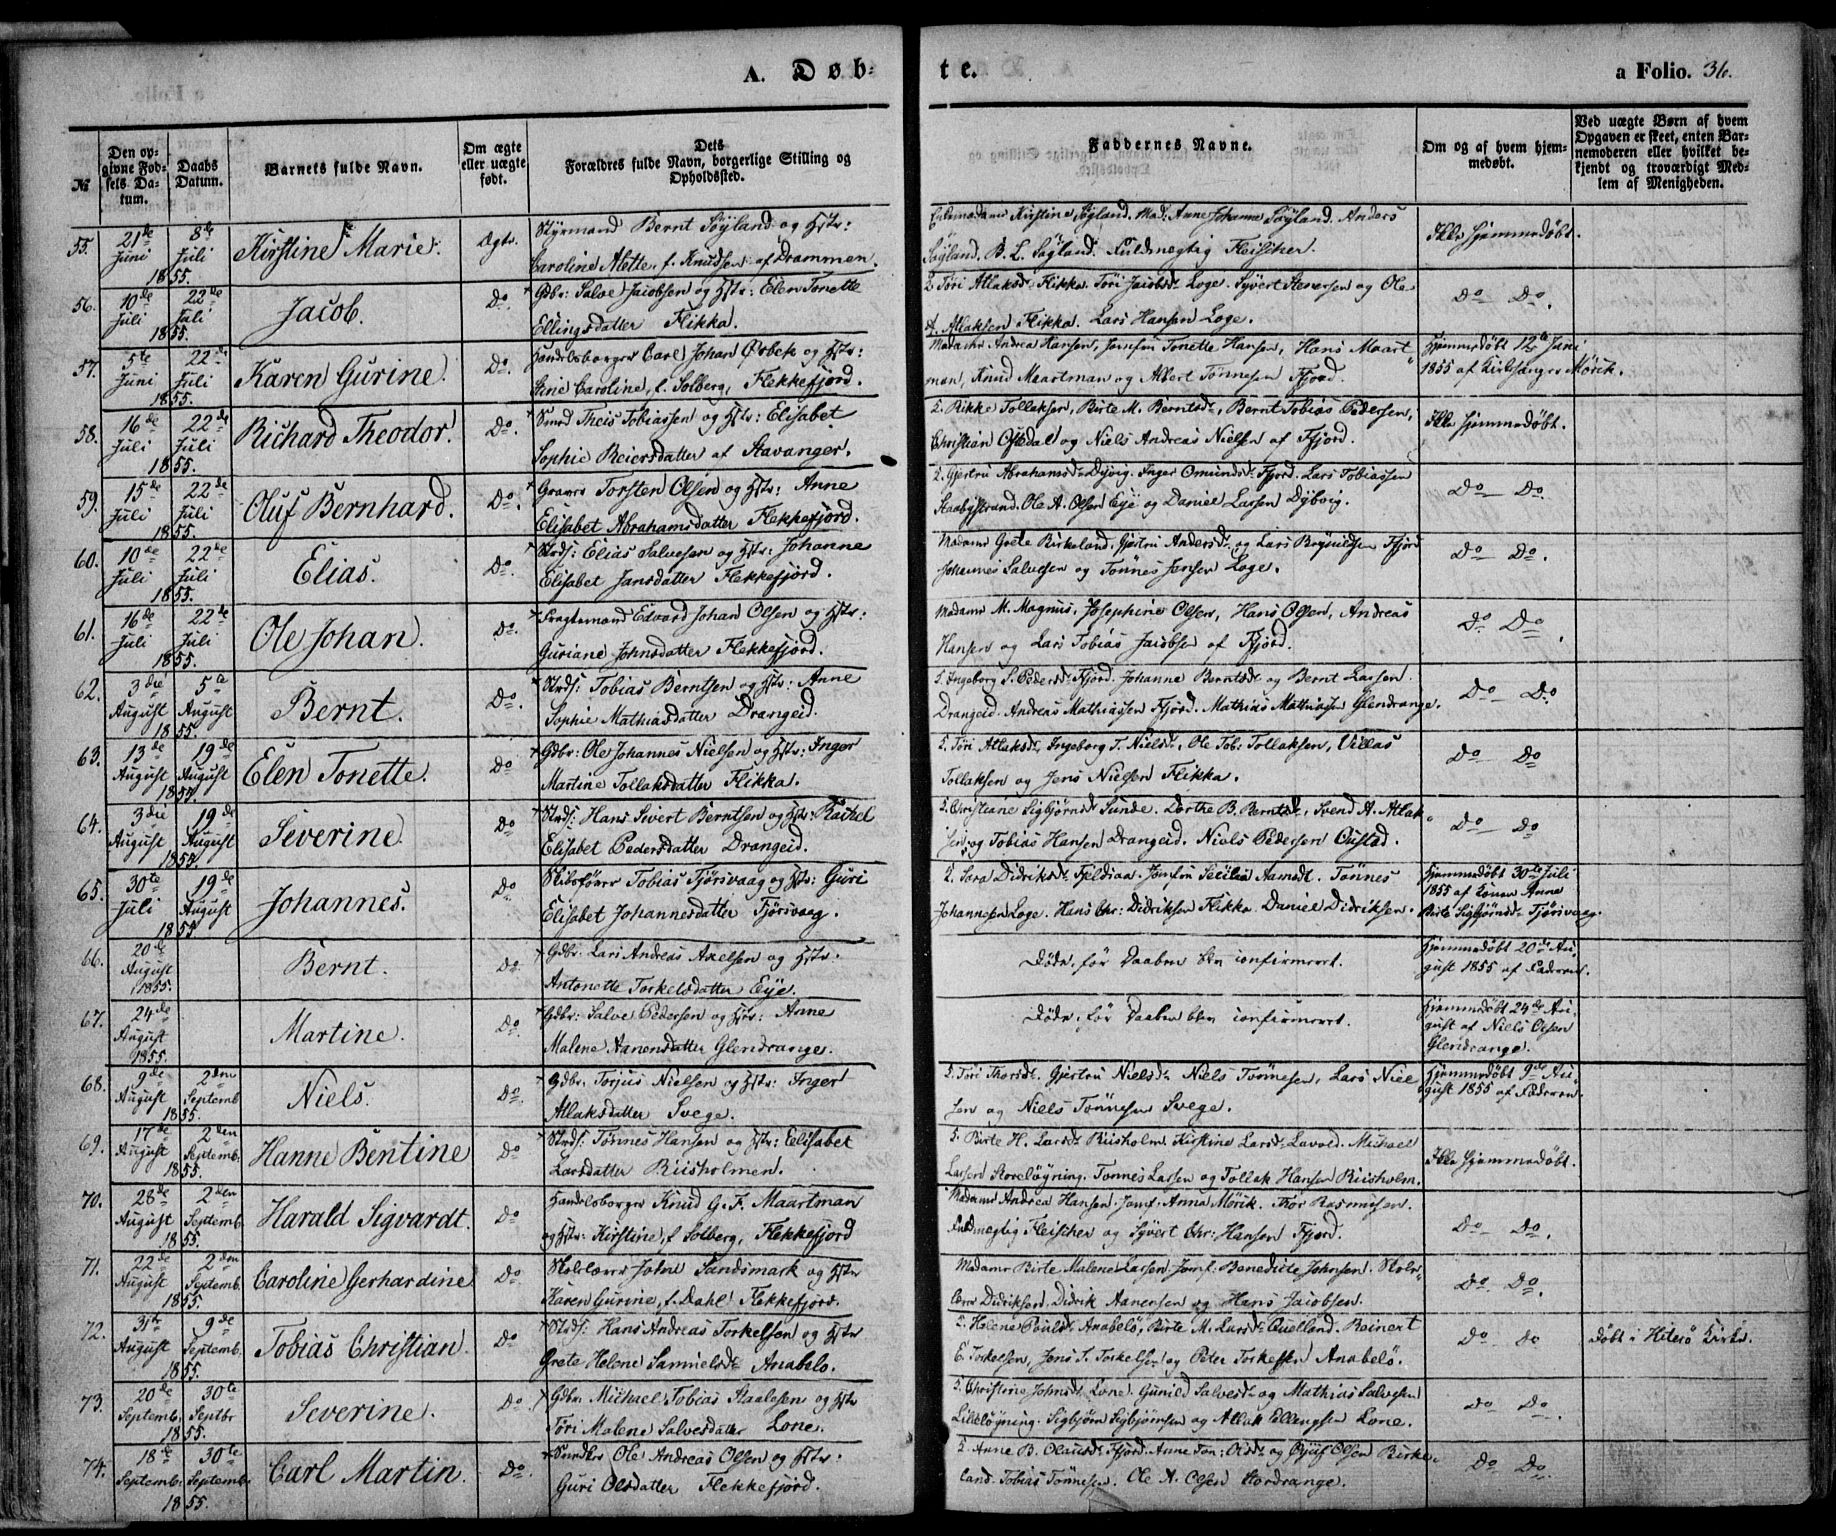 A. Døb-
te.
a Folio. 36.
№
Den op-
givne Fød-
sels Da-
tum.
Daabs
Datum.
Barnets fulde Navn.
Om ægte
eller uægte
født.
Dets
Forældres fulde Navn, borgerlige Stilling og
Opholdssted.
Faddernes Navne.
Om og af hvem hjem-
medøbt.
Ved uægte Børn af hvem
Opgaven er skeet, enten Bar-
nemoderen eller hvilket be-
kjendt og troværdigt Med-
lem af Menigheden.
55. 21de Juni 8de Juli 1855. Kirstine Marie. Ægte.
Styrmand Bernt Søyland og Hstr:
Caroline Alette, f. Knudsen af Drammen.
Kirstine Søyland. Mad: Anne Johanne Søyland. Anders
Søyland. B. L. Søyland. Fuldmegtig Fleischer.
Ikke hjemmedøbt.
56. 10de Juli 22de Juli 1855. Jacob. Do.
Gdbr: Salve Jacobsen og Hstr: Elen Tonette
Ellingsdatter Flikka.
Töri Atlaksdr Flikka. Töri Jacobsdr Loge. Syvert Atlaksen og Ole
A. Atlaksen Flikka. Lars Hansen Loge.
Do Do.
57. 5te Juni 22de Juli 1855. Karen Gurine. Do.
Handelsborger Carl Johan Ørbek og Hstr:
Sine Caroline, f. Solberg, Flekkefjord.
Madame Andrea Hansen, Jomfru Tonette Hansen, Hans Maart-
man, Knud Maartman og Albert Tönnesen Fjord.
Hjemmedøbt 12te Juni
1855 af Kirksanger Mörik.
58. 16de Juli 22de Juli 1855. Richard Theodor. Do.
Smed Theis Tobiassen og Hstr: Elisabet
Sophie Reiersdatter af Stavanger.
Rikke Tollaksen, Birte M. Berntsdr, Bernt Tobias Pedersen,
Christian Osedal og Niels Andreas Nielsen af Fjord.
Ikke hjemmedøbt.
59. 15de Juli 22de Juli 1855. Oluf Bernhard. Do.
Graver Torsten Olsen og Hstr: Anne
Elisabet Abrahamsdatter Flekkefjord.
Gjertru Abrahamsdr Dyvig. Inger Omundsdr Fjord. Lars Tobiassen
Raabystrand. Ole A. Olsen Eye og Daniel Larsen Dybvig.
Do Do.
60. 10de Juli 22de Juli 1855. Elias. Do.
Strds: Elias Salvesen og Hstr: Johanne
Elisabet Jansdatter Flekkefjord.
Madame Grete Birkeland. Gjertru Andersdr og Lars Reynildsen Fjord
Johannes Salvesen og Tönnes Jensen Loge.
Do Do.
61. 16de Juli 22de Juli 1855. Ole Johan. Do.
Fragtemand Edvard Johan Olsen og Hstr:
Guriane Johnsdatter Flekkefjord.
Madame M. Magnus, Josephine Olsen, Hans Olsen, Andreas
Hansen og Lars Tobias Jacobsen af Fjord.
Do Do.
62. 3die August 5te August 1855. Bernt. Do.
Strds: Tobias Berntsen og Hstr: Anne
Sophie Mathiasdatter Drangeid.
Ingeborg S. Pedersdr Fjord. Johanne Berntsdr og Bernt Larsen
Drangeid. Andreas Mathiassen Fjord. Mathias Mathiasen Glendrange.
Do Do.
63. 13de August 19de August 1855. Elen Tonette. Do
Gdbr: Ole Johannes Nielsen og Hstr: Inger
Martine Tollaksdatter Flikka.
Töri Atlaksdr, Ingeborg T. Nielsdr, Ole Tob: Tollaksen, Villas
Tollaksen og Jens Nielsen Flikka.
Do Do
64. 3die August 19de August 1855. Severine. Do
Strds: Hans Sivert Berntsen og Hstr: Rachel
Elisabet Pedersdatter Drangeid.
Christiane Sigbjørnsdr Sunde. Dorthe B. Berntsdr, Svend A. Atlak-
sen, og Tobias Hansen Drangeid. Niels Pedersen Oustad.
Do Do
65. 30te Juli 19de August 1855. Johannes. Do
Skibsfører Tobias Tjörsvaag og Hstr: Guri
Elisabet Johannesdatter Tjörsvaag.
Sara Didriksdr Fjeldsaa. Jomfru Secilia Aamodt. Tönnes
Johannesen Loge. Hans Chr: Didriksen Flikka. Daniel Didriksen.
Hjemmedøbt 30te Juli
1855 af Konen Anna
Birte Sigbjørnsdr Tjörsvaag.
66. 20de August 1855. Bernt. Do.
Gdbr. Lars Andreas Axelsen og Hstr:
Antonette Torkelsdatter Eye.
Døde, før Daaben blev confirmeret.
Hjemmedøbt 20de Au-
gust 1855 af Faderen.
67. 24de August 1855. Martine. Do
Gdbr: Salve Pedersen og Hstr: Anne
Malene Aanensdatter Glendrange.
Døde, før Daaben blev confirmeret.
Hjemmedøbt 24de Au-
gust af Niels Olsen
Glendrange.
68. 9de August 2den Septemb. 1855. Niels. Do.
Gdbr: Torjus Nielsen og Hstr: Inger
Atlaksdatter Svege.
Töri Thorsdr. Gjertru Nielsdr Niels Tönnesen, Lars Niel-
sen og Niels Tönnesen Svege.
Hjemmedøbt 9de Au-
gust 1855 af Faderen.
69. 17de August 2den Septemb. 1855. Hanne Bentine Do
Strds: Tönnes Hansen og Hstr: Elisabet
Larsdatter Riisholmen.
Birte H. Larsdr Riisholm. Kirstine Larsdr Lavold. Michael
Larsen Storeløgning. Tönnes Larsen og Tollak Hansen Riisholm.
Ikke hjemmedøbt.
70. 28de August 2den Septemb. 1855. Harald Sigvardt. Do
Handelsborger Knud G. F. Maartman
og Hstr: Kirstine, f. Solberg, Flekkefjord
Madame Andrea Hansen. Jomf. Anna Mörik. Thor Rasmusen.
Fuldmegtig Fleischer og Syvert Chr: Hansen Fjord.
Do Do.
71. 22de August 2den Septemb. 1855. Caroline Gerhardine Do
Skolelærer John Sandsmark og Hstr
Karen Gurine, f. Dahl Flekkefjord.
Madame Birte Malene Larsen. Jomf: Benedicte Johnsen. Skole-
lærer Didriksen. Didrik Aanensen og Hans Jacobsen.
Do Do.
72. 31te August 9de Septemb. 1855. Tobias Christian. Do
Strds: Hans Andreas Torkelsen og Hstr
Grete Helene Samuelsdr Anabelø.
Helene Poulsdr Anabelø, Birte M. Larsdr Quelland. Reinert
E. Torkelsen, Jens S. Torkelsen og Peter Torkelsen Anabelø.
Do Do
Døbt i Hiterø Kirke.
73. 20de Septemb. 30te Septbr 1855. Severine. Do
Gdbr. Michael Tobias Staalesen og Hstr
Töri Malene Salvesdatter Lone.
Christine Johnsdr Lone. Gunild Salvesdr og Mathias Salvesen
Lilleløgning. Sigbjørn Sigbjørnsen og Atlak Ellingsen Lone.
Do Do.
74. 18de Septemb. 30te Septemb. 1855. Carl Martin. Do.
Snedker Ole Andreas Olsen og Hstr:
Guri Olsdatter Flekkefjord.
Anne B. Olausdr Fjord. Anne Ton: Olsdr og Øjuf Olsen Birke-
land. Tobias Tönnesen. Ole A. Olsen Nordrange.
Do Do.